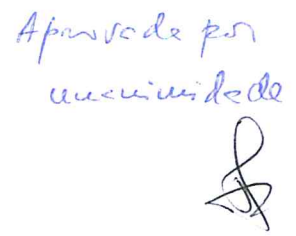 Aprovada por
unanimidade